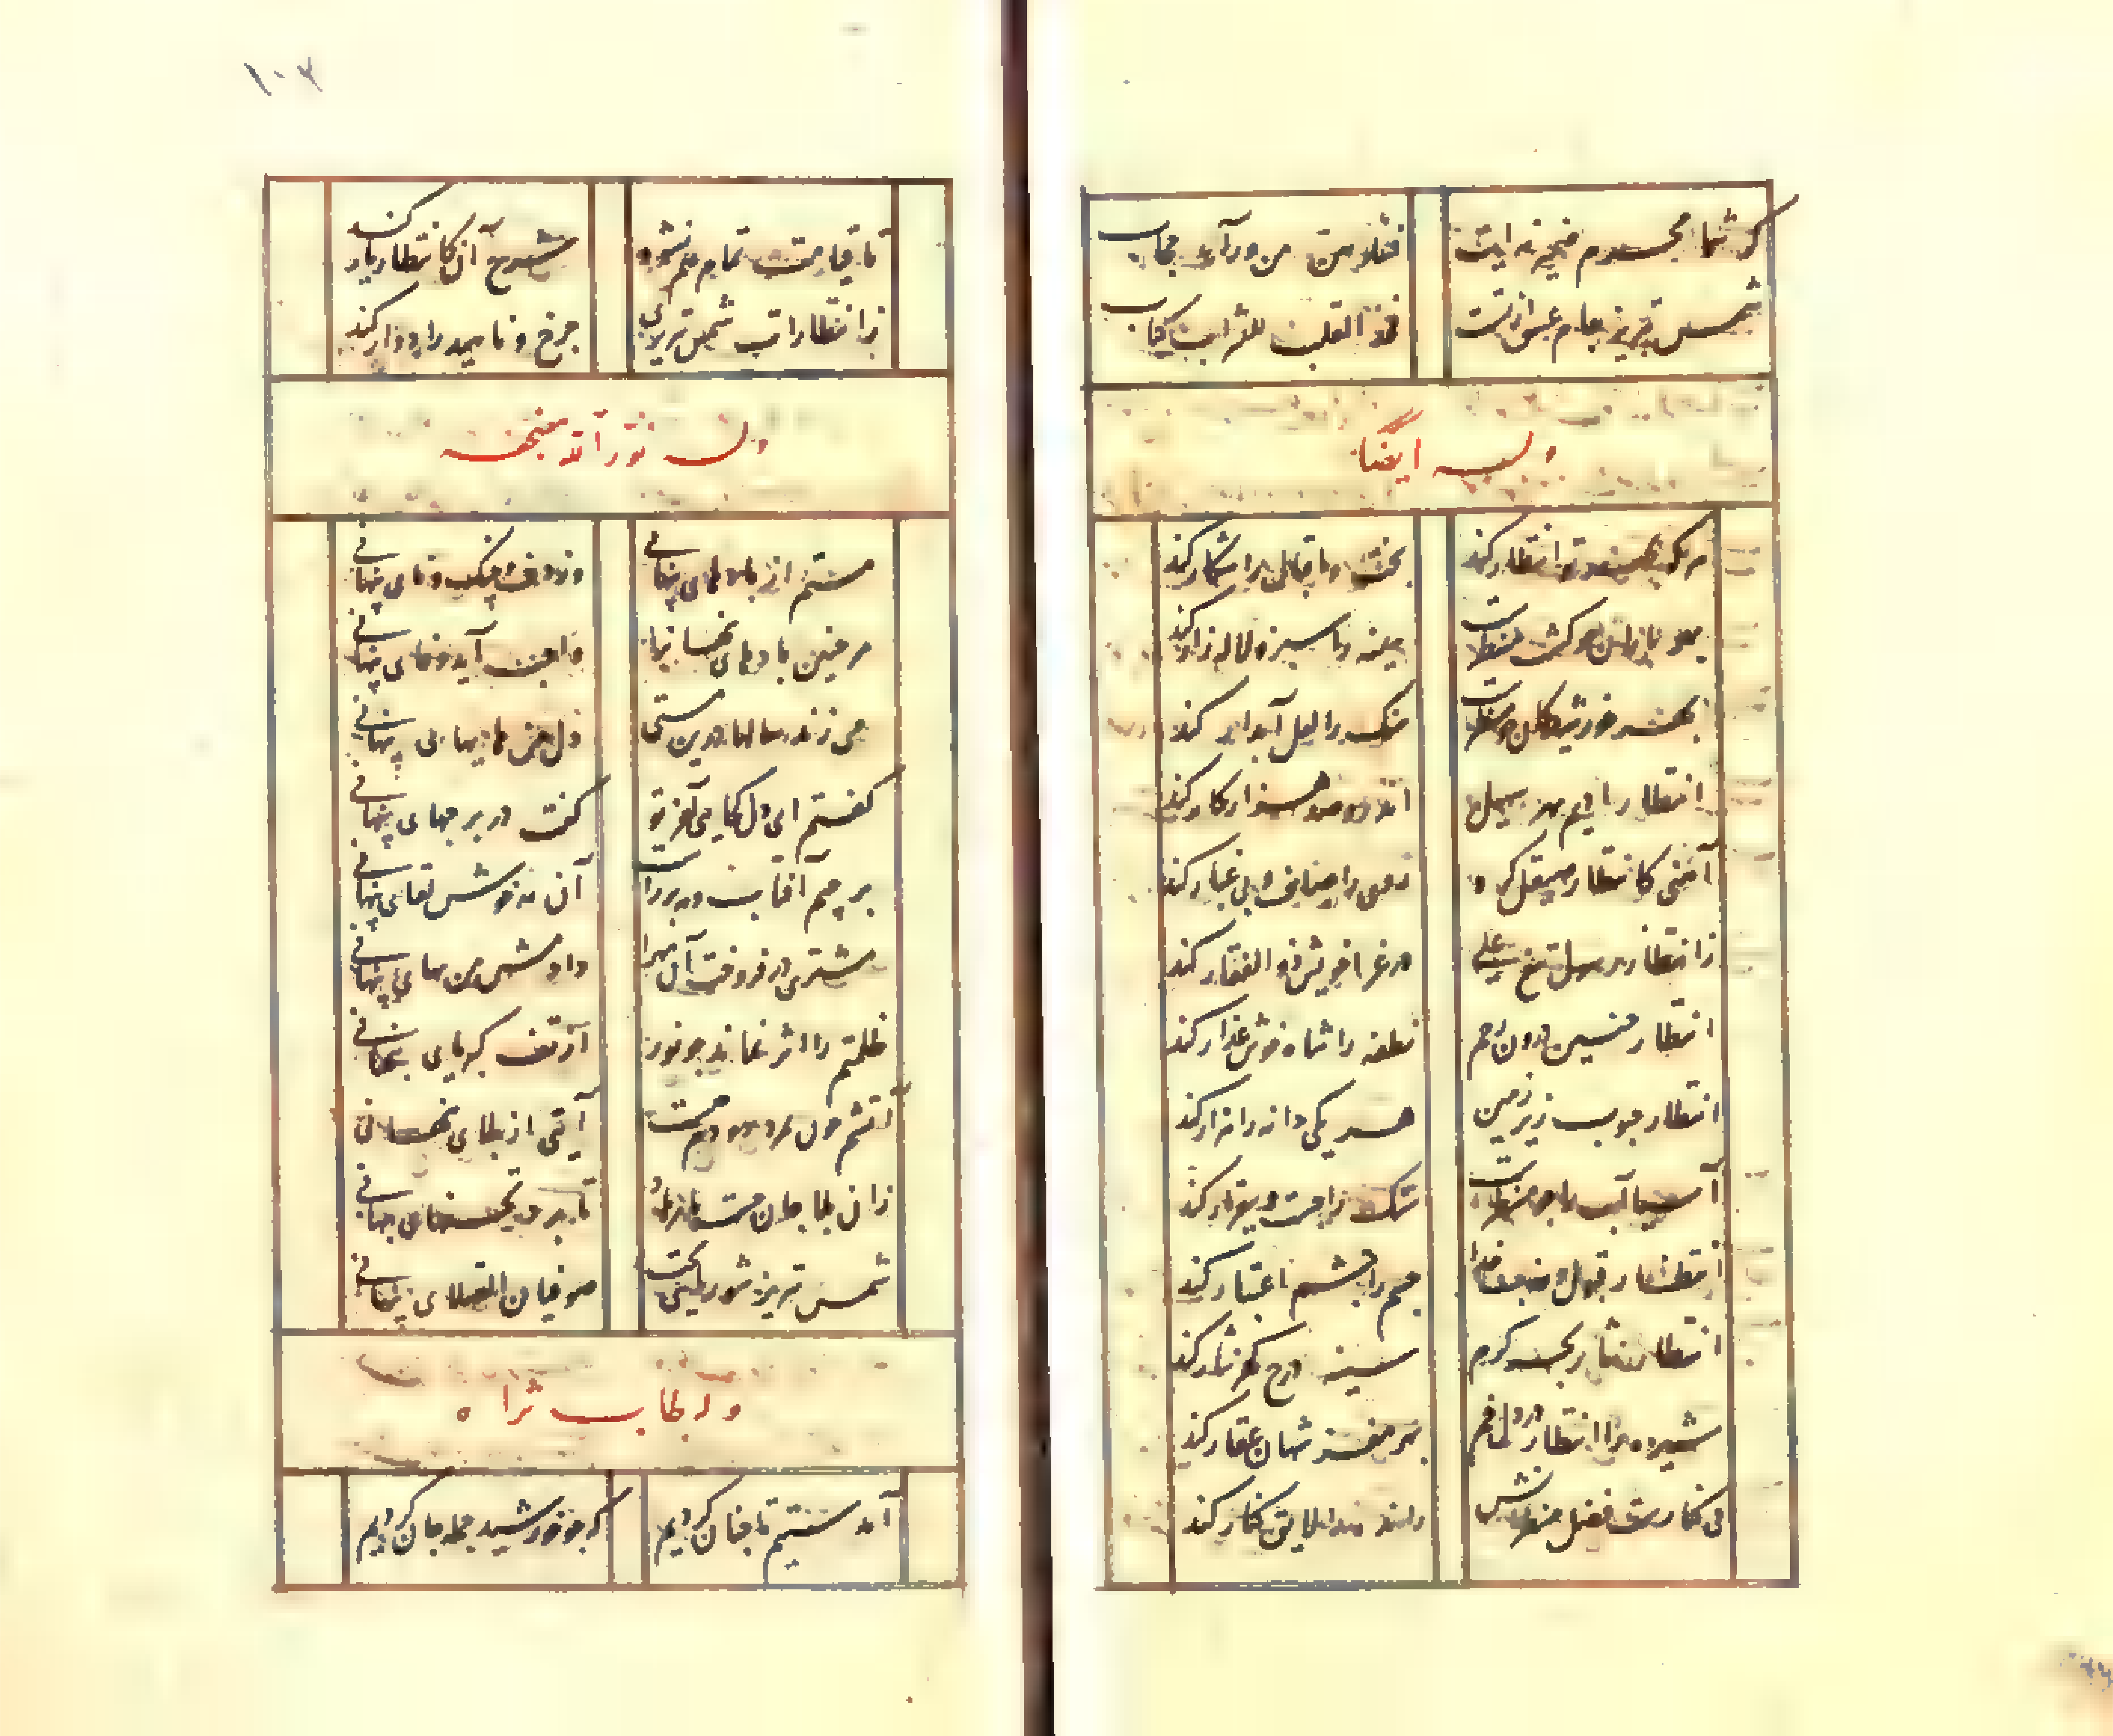 کر شما محرم ضمیر نه ایت
فتلو من من ورآء حجاب
شمس تبریز جام عشق از تست
خذ القلب للشراب کباب
وله ایضا
هر که بهر تو انتظار کند
بخت و اقبال را شکار کند
بهر باران چو کشت منتظرست
سینه را سبزه لاله زار کند
بهر خورشید کان چو منتظرست
سنک را لعل آبدار کند
انتظار ادیم بهر سهیل
اندرو صد هزار کار کند
آهنی کانتظار صیقل کرد
روی را صافی و بی غبار کند
زانتظار رسول تیغ علی
در غزا خویش ذو الفقار کند
انتظار جنین درون رحم
نطفه را شاه خوش عذار کند
انتظار حبوب زیر زمین
هر یکی دانه را هزار کند
آسیا آب را چو منتظرست
سنک را چست و بیقرار کند
انتظار قبول وحی خدا
چشم را چشم اعتبار کند
انتظار نثار بحر کرم
سینه را درج کهر نثار کند
شیره را انتظار در دل خم
بهر مغز شهان عقار کند
بی کنارست فضل منتظرش
رانده را لایق کنار کند
۱۰۳
تا قیامت تمام هم نشود
شرح آن کانتظار یار کند
زانتظارات شمس تبریزی
چرخ و ناهید را دوار کند
وله نور الله مضجعه
مستم از بادهای پنهانی
وز دف و چنک و نای پنهانی
مر چنین بادهای نهانیرا
واجب آید وفای پنهانی
می زند سالها درین مستی
دل من های های پنهانی
کفتم ای دل کجایی آخر تو
کفت در برجهای پنهانی
بر چپم آفتاب و بر راست
آن مه خوش لقای پنهانی
مشتری در فروخت آن مه را
داد مش من بهای پنهانی
ظلمتم را اثر نماند چو نور
از تف کبریای پنهانی
آتشم چون مرد و دودم هست
آیتی از بلای نهانی
زان بلا جان مست با نزهت
تا برد تحفهای پنهانی
شمس تبریز شور انکیخت
صوفیان الصلای پنهانی
وله طاب ثراه
آمدستیم تا چنان کردیم
که چو خورشید جمله جان کردیم